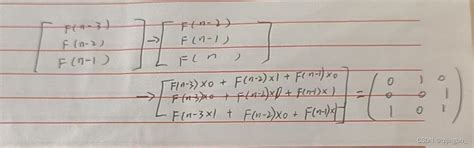 [F(n-3) F(n-2) F(n-1)] → [F(n-2) F(n-1) F(n)]
→ [F(n-3)×0 + F(n-2)×1 + F(n-1)×0
F(n-3)×0 + F(n-2)×0 + F(n-1)×1
F(n-3×1 + F(n-2)×0 + F(n-1)×1] = (0 1 0
0 0 1
1 0 1)